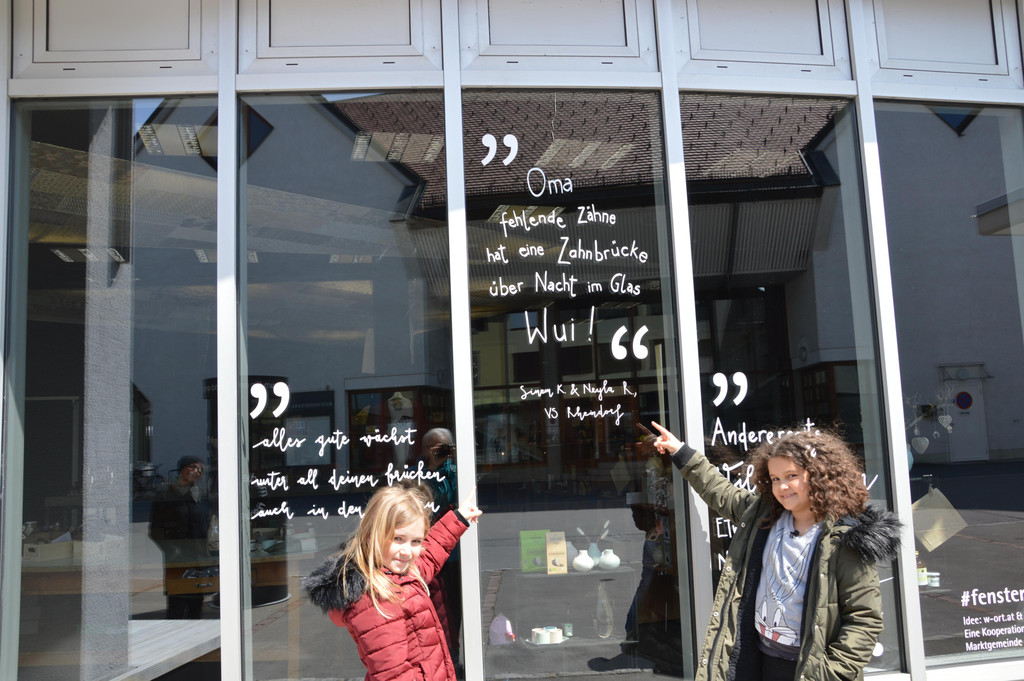 „
Oma
fehlende Zähne
hat eine Zahnbrücke
über Nacht im Glas
Wui!
“
Simon K & Neyla R,
VS Rhendorf
„
alles gute wächst
unter all deinen brücken
auch in den
„
#fenster
Idee: w-ort.at &
Eine Kooperation
Marktgemeinde